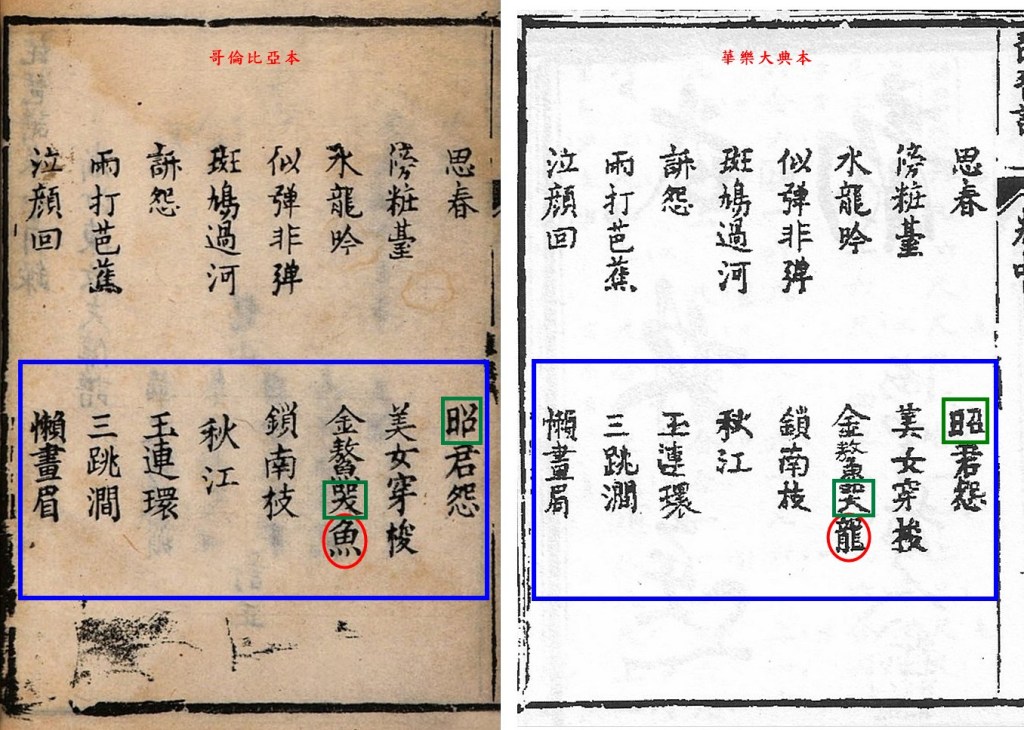 哥倫比亞本
思春
傍粧臺
水龍吟
似彈非彈
斑鳩過河
訴怨
雨打芭蕉
泣顔回
昭君怨
美女穿梭
金鰲哭魚
鎖南枝
秋江
玉連環
三跳澗
懶畫眉
華樂大典本
思春
傍粧臺
水龍吟
似彈非彈
斑鳩過河
訴怨
雨打芭蕉
泣顔回
昭君怨
美女穿梭
金鰲哭龍
鎖南枝
秋江
玉連環
三跳澗
懶畫眉